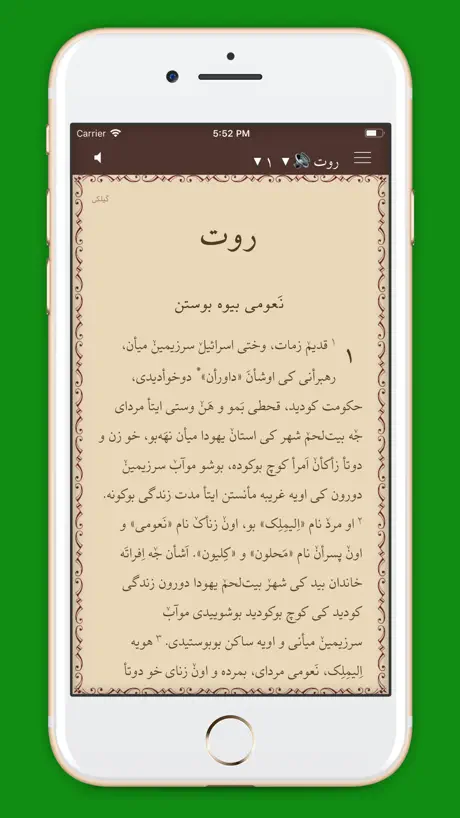 Carrier 5:52 PM
روت ▼ ۱ ▼
گیلکی
روت
نَعومی بیوه بوستن
۱ ۱ قدیمˇ زمات، وختی اسرائیلˇ سرزیمینˇ میأن،
رهبرأنی کی اوشأنَ «داورأن»* دوخوأدیدی،
حکومت کودید، قحطی بَمو و هَنˇ وستی ایتأ مردای
جه بیت‌لحمˇ شهر کی استانˇ یهودا میأن نهَه‌بو، خو زن و
دوتأ زأکأنˇ اَمرأ کوچ بوکوده، بوشو موآبˇ سرزیمینˇ
دورون کی اویه غریبه مأنستن ایتأ مدت زندگی بوکونه.
۲ او مردˇ نام «اِلیمِلِک» بو، اونˇ زنأکˇ نام «نَعومی» و
اونˇ پسرأنˇ نام «مَحلون» و «کِلیون». اَشأن جه اِفراتَه
خاندان بید کی شهرˇ بیت‌لحمˇ یهودا دورون زندگی
کودید کی کوچ بوکودید بوشوییدی موآبˇ
سرزیمینˇ میأنی و اویه ساکن بوبوستیدی. ۳ هویه
اِلیمِلِک، نَعومی مردای، بمرده و اونˇ زنای خو دوتأ